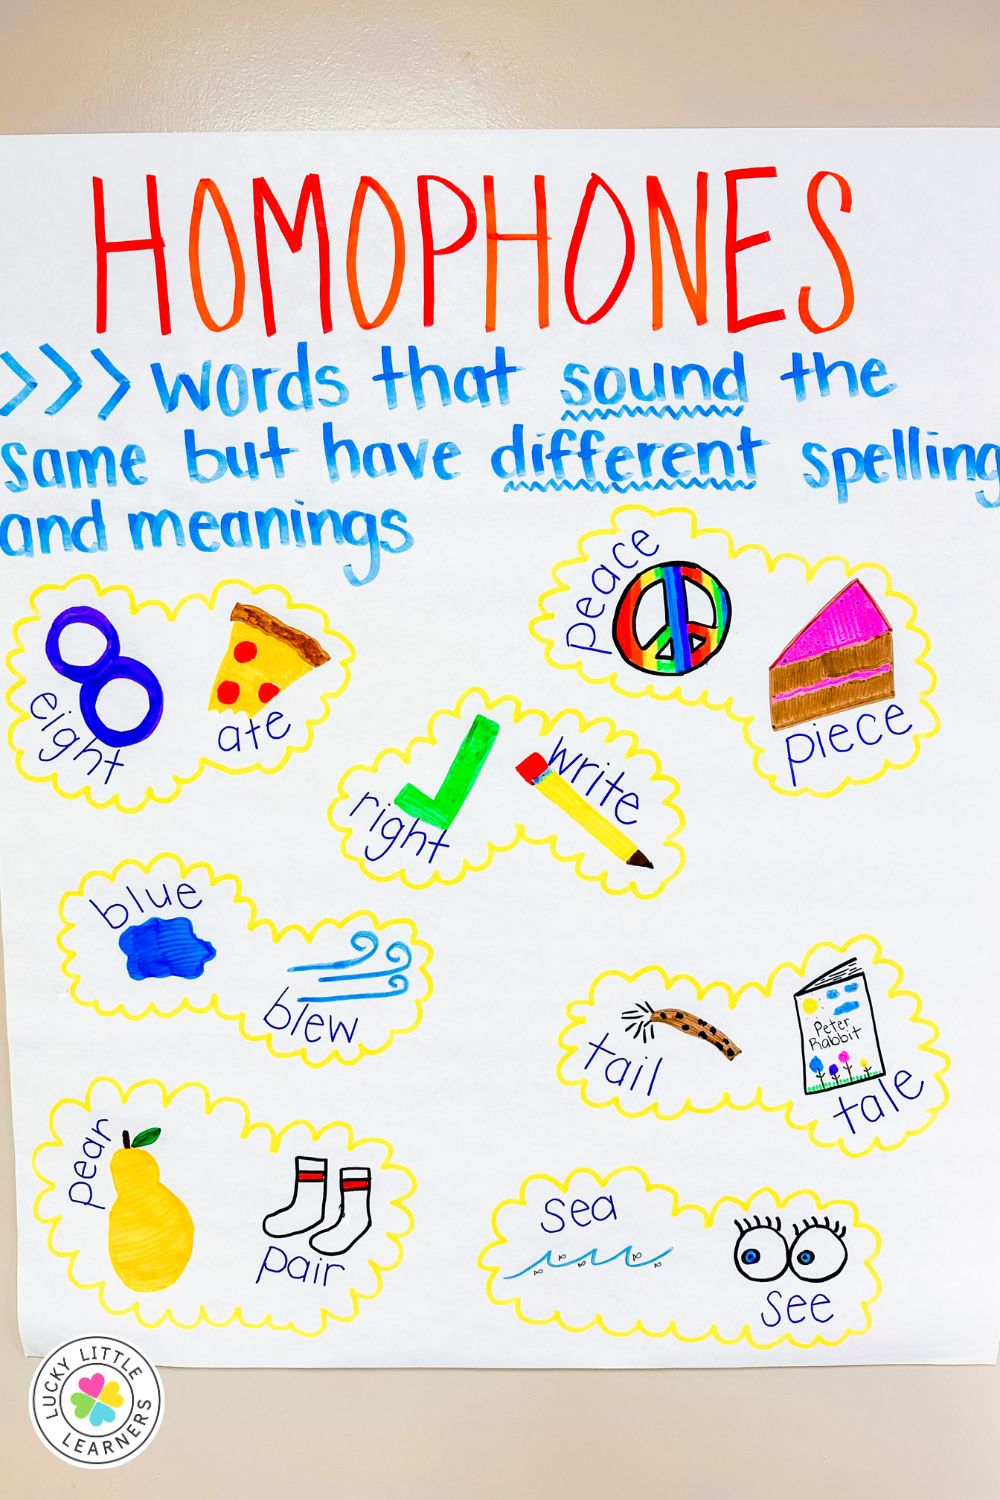 HOMOPHONES
>>> words that sound the
same but have different spelling
and meanings
eight
ate
peace
piece
right
write
blue
blew
tail
Peter
Rabbit
tale
pear
pair
sea
see
LUCKY LITTLE
LEARNERS